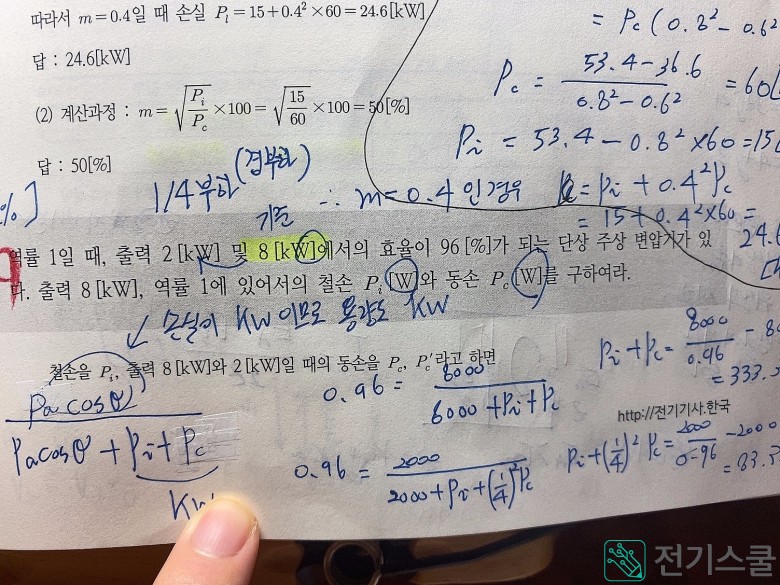 따라서 m=0.4일 때 손실 P_l = 15+0.4²×60 = 24.6[kW]
답 : 24.6[kW]
(2) 계산과정 : m = √(P_i/P_c) ×100 = √(15/60) ×100 = 50[%]
답 : 50[%]
= P_c (0.8² - 0.6²
P_c = (53.4-36.6)/(0.8²-0.6²) = 60[
P_i = 53.4 - 0.8²×60 = 15[
%]
1/4부하 (경부하)
기준
∴ m=0.4인경우 P_i + 0.4²P_c
= 15+0.4²×60 =
24.6
역률 1일 때, 출력 2[kW] 및 8[kW]에서의 효율이 96[%]가 되는 단상 주상 변압기가 있
다. 출력 8[kW], 역률 1에 있어서의 철손 P_i[W]와 동손 P_c[W]를 구하여라.
손실이 KW 이므로 용량도 KW
철손을 P_i, 출력 8[kW]와 2[kW]일 때의 동손을 P_c, P_c′라고 하면
Pa cosθ / (Pa cosθ + P_i + P_c)
KW
0.96 = 8000 / (8000 + P_i + P_c)
P_i + P_c = 8000/0.96 - 80
= 333.3
http://전기기사.한국
0.96 = 2000 / (2000 + P_i + (1/4)²P_c)
P_i + (1/4)² P_c = 2000/0.96 - 2000
= 83.3
전기스쿨